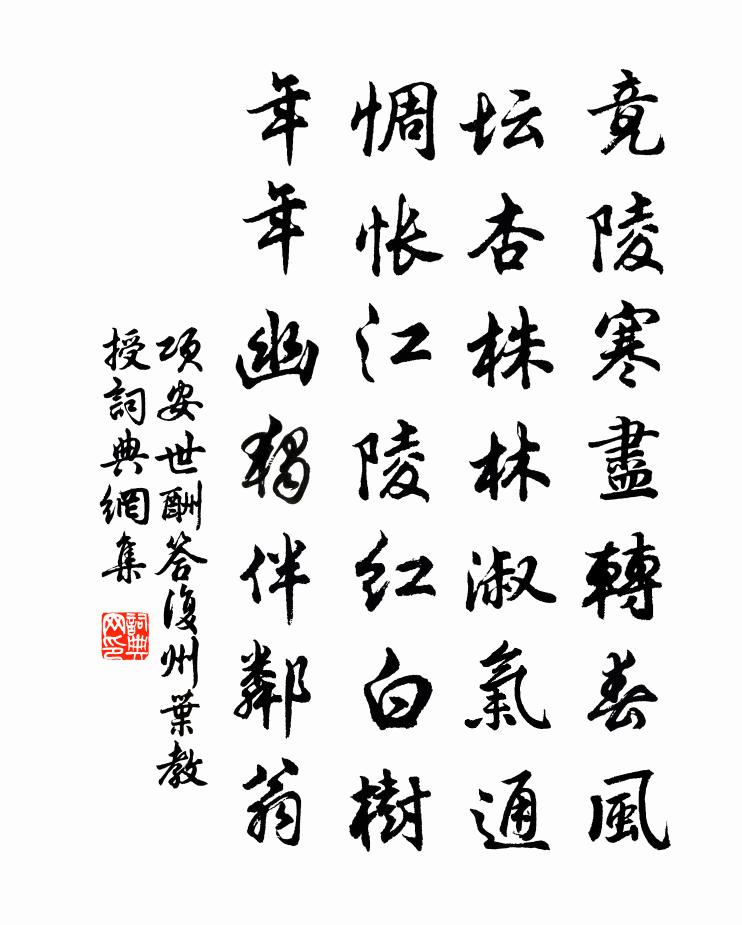 竟陵寒盡轉春風
坛杏株林淑氣通
惆怅江陵红白樹
年年幽獨伴鄰翁
项安世酬答復州葉教
授詞典網集
詞典
网印